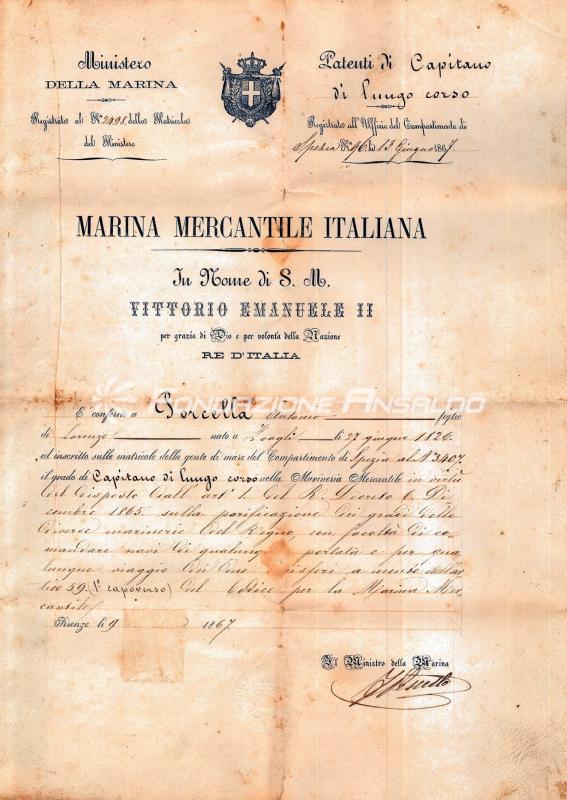 Ministero
DELLA MARINA
Registrato al N.º 2498 della Matricola
del Ministero
Patenti di Capitano
di lungo corso
Registrato all'Uffizio del Compartimento di
Spezia N.º 96 li 13 Giugno 1867
MARINA MERCANTILE ITALIANA
In Nome di S. M.
VITTORIO EMANUELE II
per grazia di Dio e per volontà della Nazione
RE D'ITALIA
FONDAZIONE ANSALDO
È conferito a Porcella Antonio figlio
di Lorenzo nato a Zoagli li 27 giugno 1826
ed inscritto sulle matricole della gente di mare del Compartimento di Spezia al N.º 3407
il grado di Capitano di lungo corso nella Marineria Mercantile in virtù
del disposto dall'art.º 1. del R. Decreto 6 Di-
cembre 1865 sulla parificazione dei gradi delle
diverse marinerie del Regno, con facoltà di co-
mandare navi di qualunque portata e per qua-
lunque viaggio a mente dell'arti-
colo 59 (1.º capoverso) del Codice per la Marina Mer-
cantile
Firenze li 9 1867.
Il Ministro della Marina